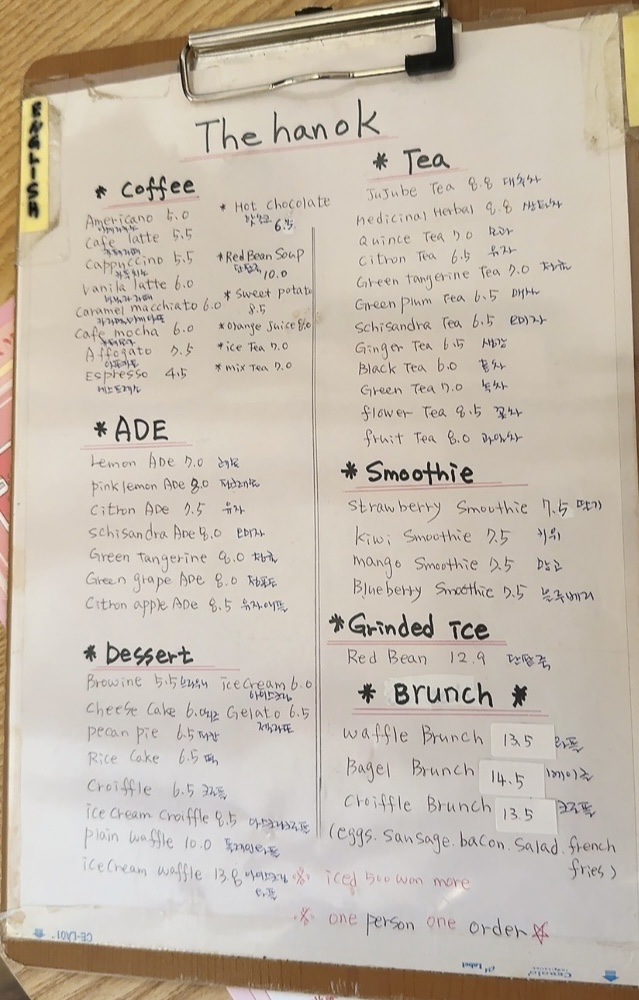 ENGLISH
The hanok
* Coffee
Americano 5.0
Cafe latte 5.5
Cappuccino 5.5
Vanila latte 6.0
Caramel macchiato 6.0
Cafe mocha 6.0
Affogato 7.5
Espresso 4.5
에스프레소
* Hot chocolate
핫초코 6.5
* Red Bean Soup
단팥죽 10.0
* Sweet potato
8.5
* orange Juice 8.0
* ice Tea 7.0
* mix Tea 7.0
* ADE
Lemon ADE 7.0 레몬
pink lemon ADE 8.0
Citron ADE 7.5 유자
Schisandra ADE 8.0 오미자
Green Tangerine 8.0 청귤
Green grape ADE 8.0 청포도
Citron apple ADE 8.5 유자애플
* Dessert
Browine 5.5 브라우니 icecream 6.0
아이스크림
Cheese Cake 6.0 치즈 Gelato 6.5
젤라또
pecan pie 6.5 피칸
Rice Cake 6.5 떡
Croiffle 6.5 크로플
ice cream croiffle 8.5 아이스크림크로플
plain waffle 10.0 플레인와플
icecream waffle 13.8 아이스크림
와플
* Tea
JuJube Tea 8.8 대추차
Medicinal Herbal 8.8 쌍화차
Quince Tea 7.0 모과
Citron Tea 6.5 유자
Green tangerine Tea 7.0 청귤
Green plum Tea 6.5 매실
Schisandra Tea 6.5 오미자
Ginger Tea 6.5 생강
Black Tea 6.0 홍차
Green Tea 7.0 녹차
flower Tea 8.5 꽃차
fruit Tea 8.0 과일차
* Smoothie
Strawberry Smoothie 7.5 딸기
Kiwi Smoothie 7.5 키위
mango Smoothie 7.5 망고
Blueberry Smoothie 7.5 블루베리
* Grinded ice
Red Bean 12.9 단팥죽
* Brunch *
waffle Brunch 13.5 와플
Bagel Brunch 14.5 베이글
Croiffle Brunch 13.5 크로플
(eggs. sansage. bacon. salad. french
fries)
※ iced 500 won more
※ one person one order ☆
CE-LA01